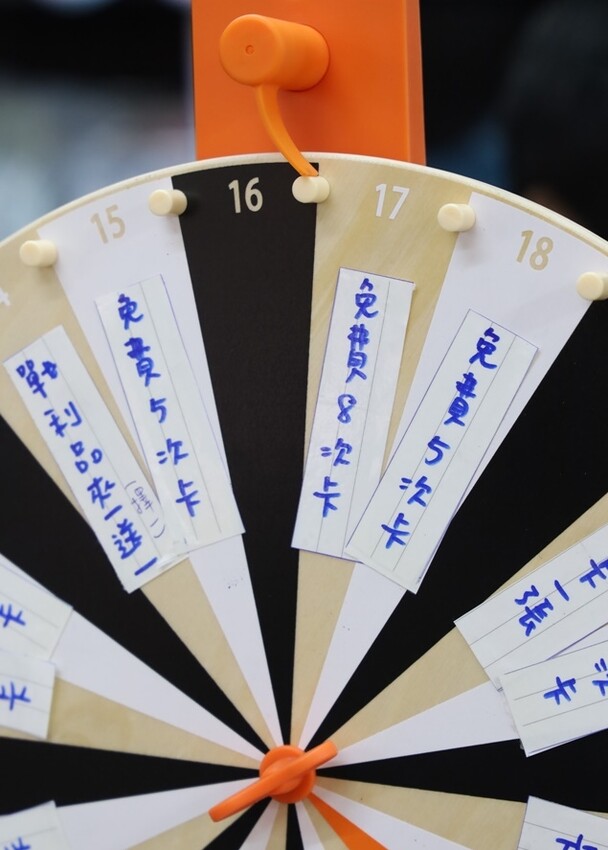 15
16
17
18
戰利品來一送一
免費5次卡
免費8次卡
免費5次卡
卡一張
次卡
卡
卡